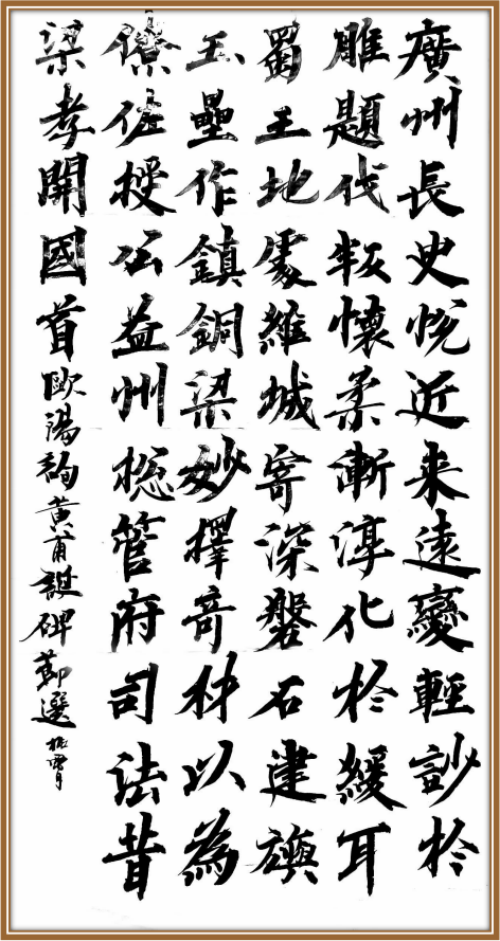 廣州長史悅近来遠變輕訬於
雕題伐叛懷柔漸淳化於緩耳
蜀王地處維城寄深磐石建旟
玉壘作鎮銅梁妙擇奇材以為
僚佐授公益州揔管府司法昔
梁孝開國首歐陽詢黃甫誕碑節選